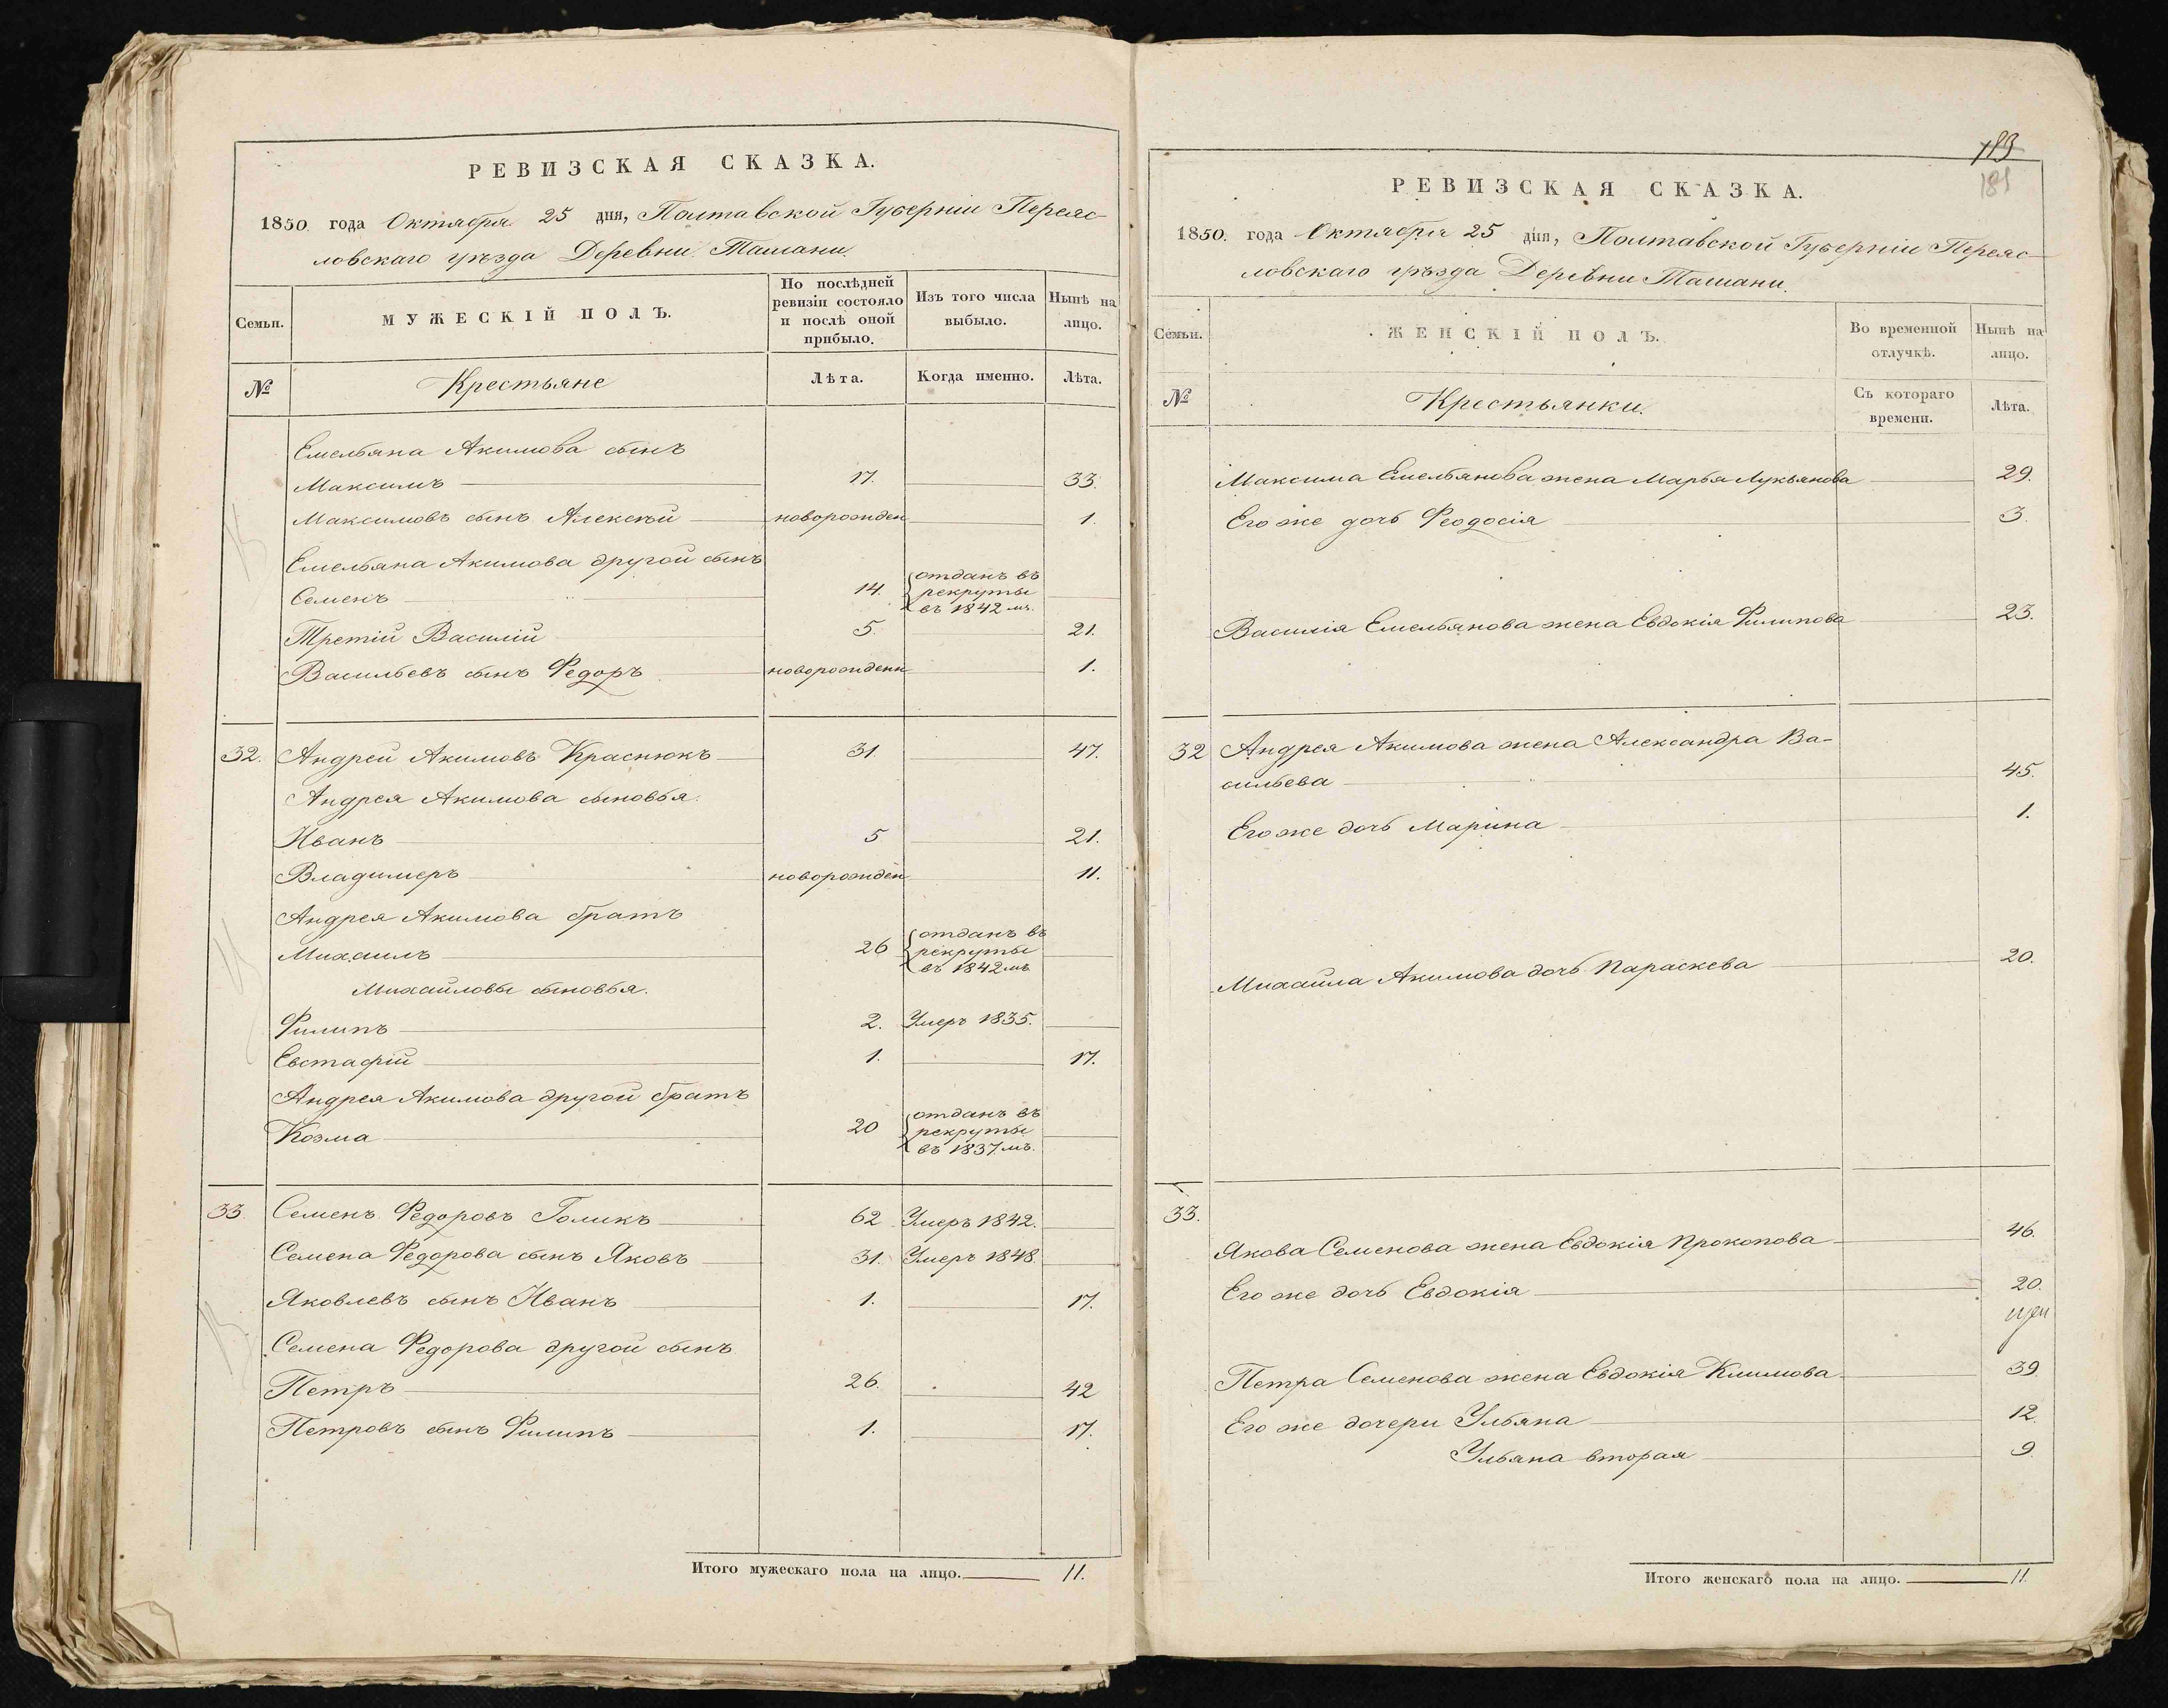 РЕВИЗСКАЯ СКАЗКА.
1850. года Октября 25 дня, Полтавской Губерніи Переяс-
ловскаго уѣзда Деревни Ташани.
Семьи.
МУЖЕСКІЙ ПОЛЪ.
По послѣдней ревизіи состояло и послѣ оной прибыло.
Изъ того числа выбыло.
Нынѣ на лицо.
№
Крестьяне
Лѣта.
Когда именно.
Лѣта.
Емельяна Акимова сынъ
Максимъ 17. 33.
Максимовъ сынъ Алексѣй новорожден 1.
Емельяна Акимова другой сынъ
Семенъ 14. отданъ въ рекруты въ 1842 мъ.
Третій Василій 5. 21.
Васильевъ сынъ Федоръ новорожденн 1.
32. Андрей Акимовъ Краснюкъ 31. 47.
Андрея Акимова сыновья.
Иванъ 5 21.
Владимеръ новорожден 11.
Андрея Акимова братъ
Михаилъ 26 отданъ въ рекруты въ 1842 мъ
Михайловы сыновья.
Филипъ 2. Умеръ 1835.
Евстафій 1. 17.
Андрея Акимова другой братъ
Козма 20 отданъ въ рекруты въ 1837. мъ.
33. Семенъ Федоровъ Голикъ 62 Умеръ 1842.
Семена Федорова сынъ Яковъ 31. Умеръ 1848.
Яковлевъ сынъ Иванъ 1. 17.
Семена Федорова другой сынъ
Петръ 26. 42
Петровъ сынъ Филипъ 1. 17.
Итого мужескаго пола на лицо. 11.
183
181
РЕВИЗСКАЯ СКАЗКА.
1850. года Октября 25 дня, Полтавской Губерніи Переяс-
ловскаго уѣзда Деревни Ташани.
Семьи.
ЖЕНСКІЙ ПОЛЪ.
Во временной отлучкѣ.
Нынѣ на лицо.
№
Крестьянки.
Съ котораго времени.
Лѣта.
Максима Емельянова жена Марья Лукьянова 29.
Его же дочь Феодосія 3.
Василія Емельянова жена Евдокія Филипова 23.
32 Андрея Акимова жена Александра Ва-
сильева 45.
Его же дочь Марина 1.
Михаила Акимова дочь Параскева 20.
33.
Якова Семенова жена Евдокія Прокопова 46.
Его же дочь Евдокія 20.
Петра Семенова жена Евдокія Климова 39.
Его же дочери Ульяна 12.
Ульяна вторая 9.
Итого женскаго пола на лицо. 11.